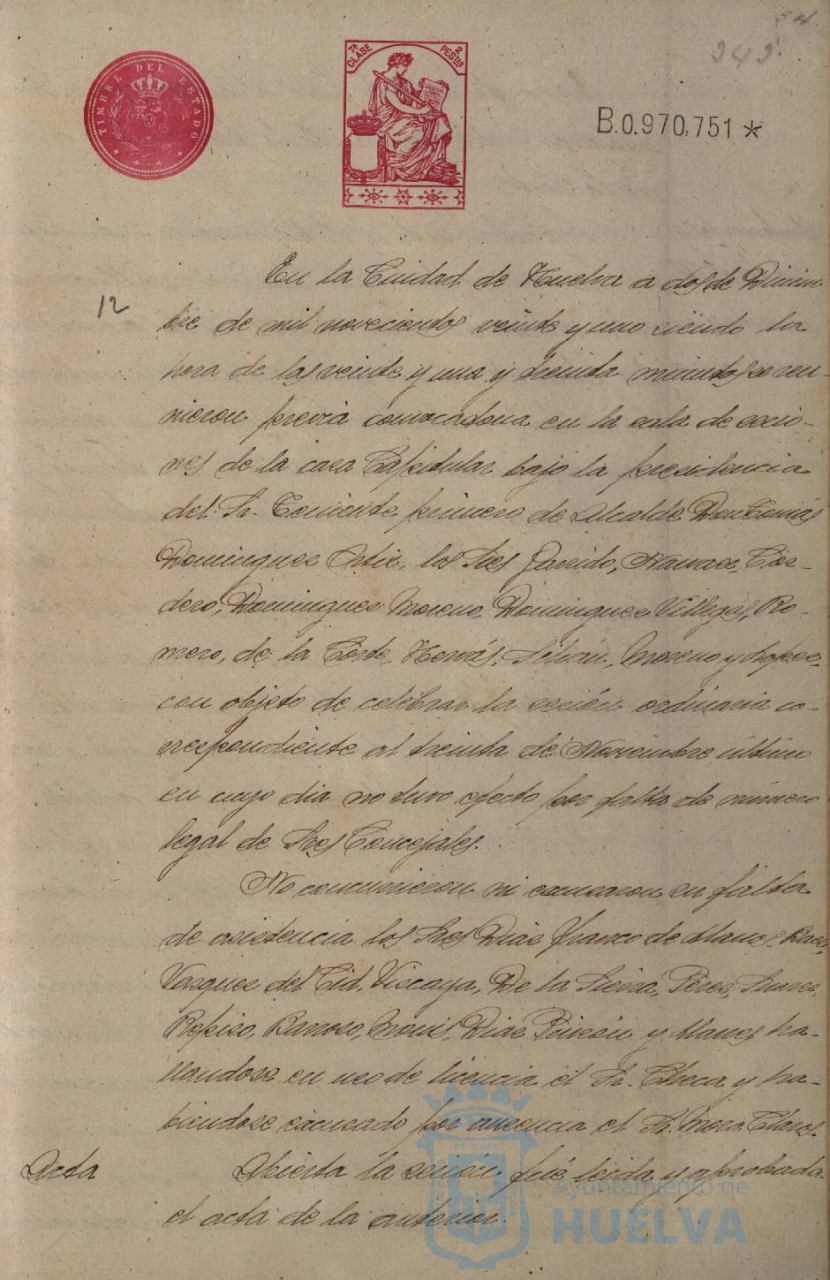 343.
TIMBRE DEL ESTADO
7ª CLASE 2 PESTAS
B.0.970,751 *
12
En la Ciudad de Huelva a dos de Diciem-
bre de mil novecientos veinte y uno siendo la
hora de las veinte y una y treinta minutos se reu-
nieron previa convocatoria en la sala de sesio-
nes de la casa Capitular bajo la presidencia
del Sr. Teniente primero de Alcalde Don Tomás
Dominguez Ortiz, los Sres Garrido, Narvaez, Cor-
dero, Dominguez Moreno, Dominguez Villegas, Ro-
mero, de la Corte, Moreno y Lopez,
con objeto de celebrar la sesión ordinaria co-
rrespondiente al treinta de Noviembre último
en cuyo dia no tuvo efecto por falta de número
legal de Sres Concejales.
No concurrieron ni excusaron su falta
de asistencia los Sres Diaz Franco de Llanos,
Vazquez del Cid, Vizcaya, De la Sierra, Perez, Suarez,
Barroso, Diaz Pinzón y Llanes ha-
llandose en uso de licencia el Sr. Checa y ha-
biendose excusado por ausencia el Sr. Mora Claros.
Acta Abierta la sesión fué leida y aprobada
el acta de la anterior.
Ayuntamiento de
HUELVA